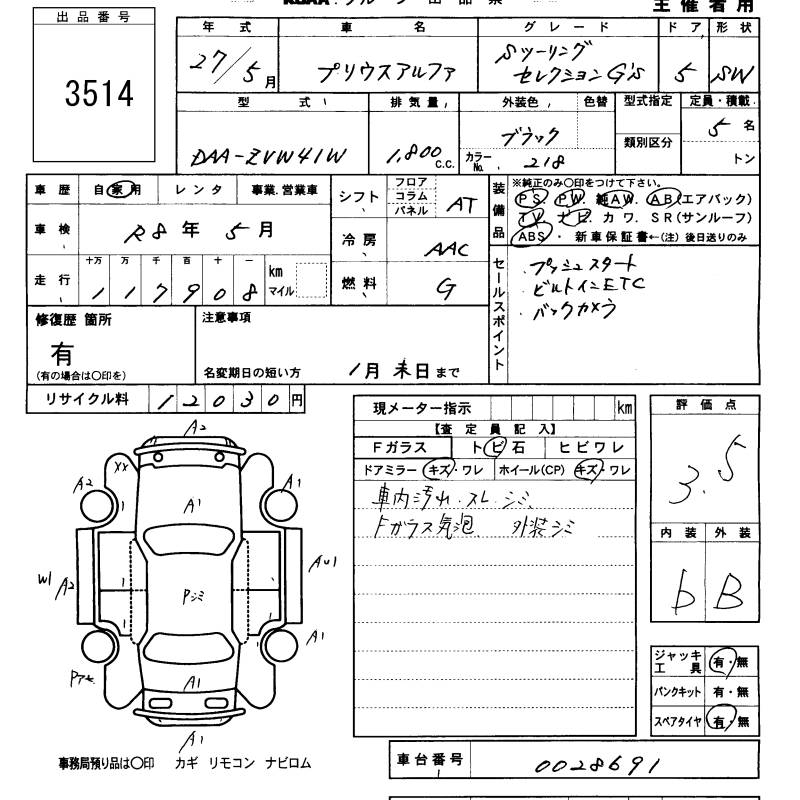 主催者用
出品番号
3514
年式 車名 グレード ドア 形状
27/5月 プリウスアルファ Sツーリング セレクションG's 5 SW
型式 排気量 外装色 色替 型式指定 定員・積載
類別区分
DAA-ZVW41W 1,800 c.c. ブラック カラーNo. 218 5名
トン
車歴 自家用 レンタ 事業.営業車
車検 R8年 5月
走行 十万 万 千 百 十 一
117908 km マイル
シフト フロア コラム パネル AT
冷房 AAC
燃料 G
装備品 ※純正のみ○印をつけて下さい。
PS PW 純AW. AB(エアバック)
TV ナビ.カワ.SR(サンルーフ)
ABS・新車保証書←(注)後日送りのみ
セールスポイント
プッシュスタート
ビルトインETC
バックカメラ
修復歴 箇所
有
(有の場合は○印を)
注意事項
名変期日の短い方 1月末日まで
リサイクル料 12030円
現メーター指示 km
【査定員記入】
Fガラス トビ石 ヒビワレ
ドアミラー キズ・ワレ ホイール(CP) キズ・ワレ
車内汚れ.スレ.シミ
Fガラス気泡 外装シミ
評価点
3.5
内装 外装
b B
ジャッキ工具 有・無
パンクキット 有・無
スペアタイヤ 有・無
A2
XX
A2
A1
A1
W1 A2
Pシミ
AU1
A1
A1
A1
事務局預り品は○印 カギ リモコン ナビロム
車台番号 0028691